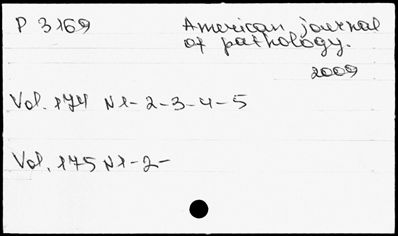 P 3169
American journal
of pathology.
2009
Vol. 174 N1-2-3-4-5
Vol. 175 N1-2-